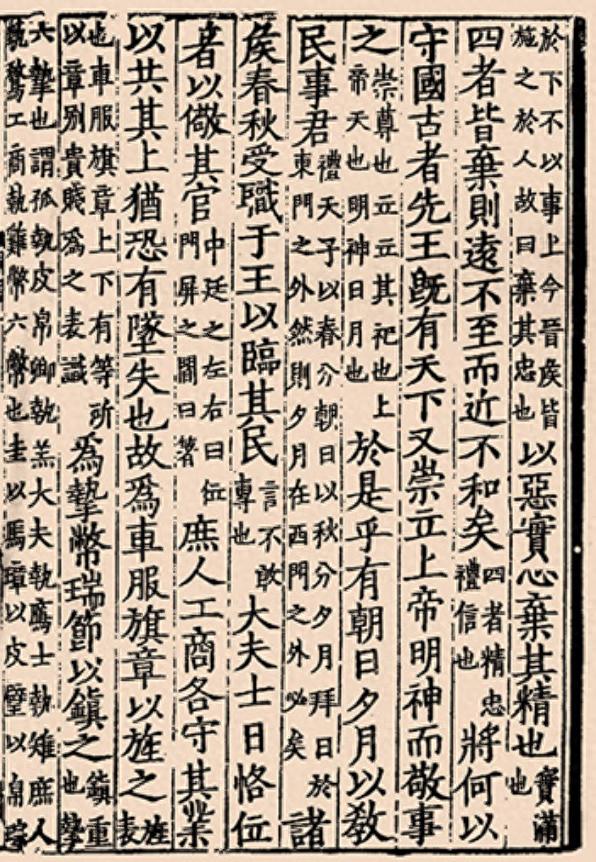 於下不以事上今晉侯皆施之於人故曰棄其忠也以惡實心棄其精也實滿也
四者皆棄則遠不至而近不和矣四者精忠禮信也將何以
守國古者先王旣有天下又崇立上帝明神而敬事
之崇尊也立立其祀也上帝天也明神日月也於是乎有朝日夕月以敎
民事君禮天子以春分朝日以秋分夕月拜日於東門之外然則夕月在西門之外必矣諸
侯春秋受職于王以臨其民言不敢專也大夫士日恪位
者以儆其官中廷之左右曰位門屏之間曰著庶人工商各守其業
以共其上猶恐有墜失也故爲車服旗章以旌之旌表
也車服旗章上下有等所以章別貴賤爲之表識爲摯幣瑞節以鎮之鎮重也摯
六摯也謂孤執皮帛卿執羔大夫執鴈士執雉庶人執鶩工商執雞幣六幣也圭以馬璋以皮璧以帛琮